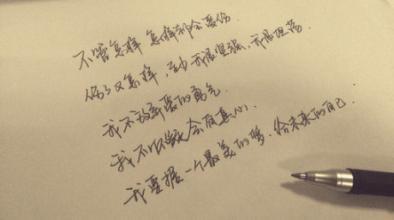 不管怎样 怎样都会受伤.
伤了又怎样,至少我很坚强,我很坦荡
我不放弃爱的勇气
我不怀疑会有真心.
我要握一个最美的梦.给未来的自己.